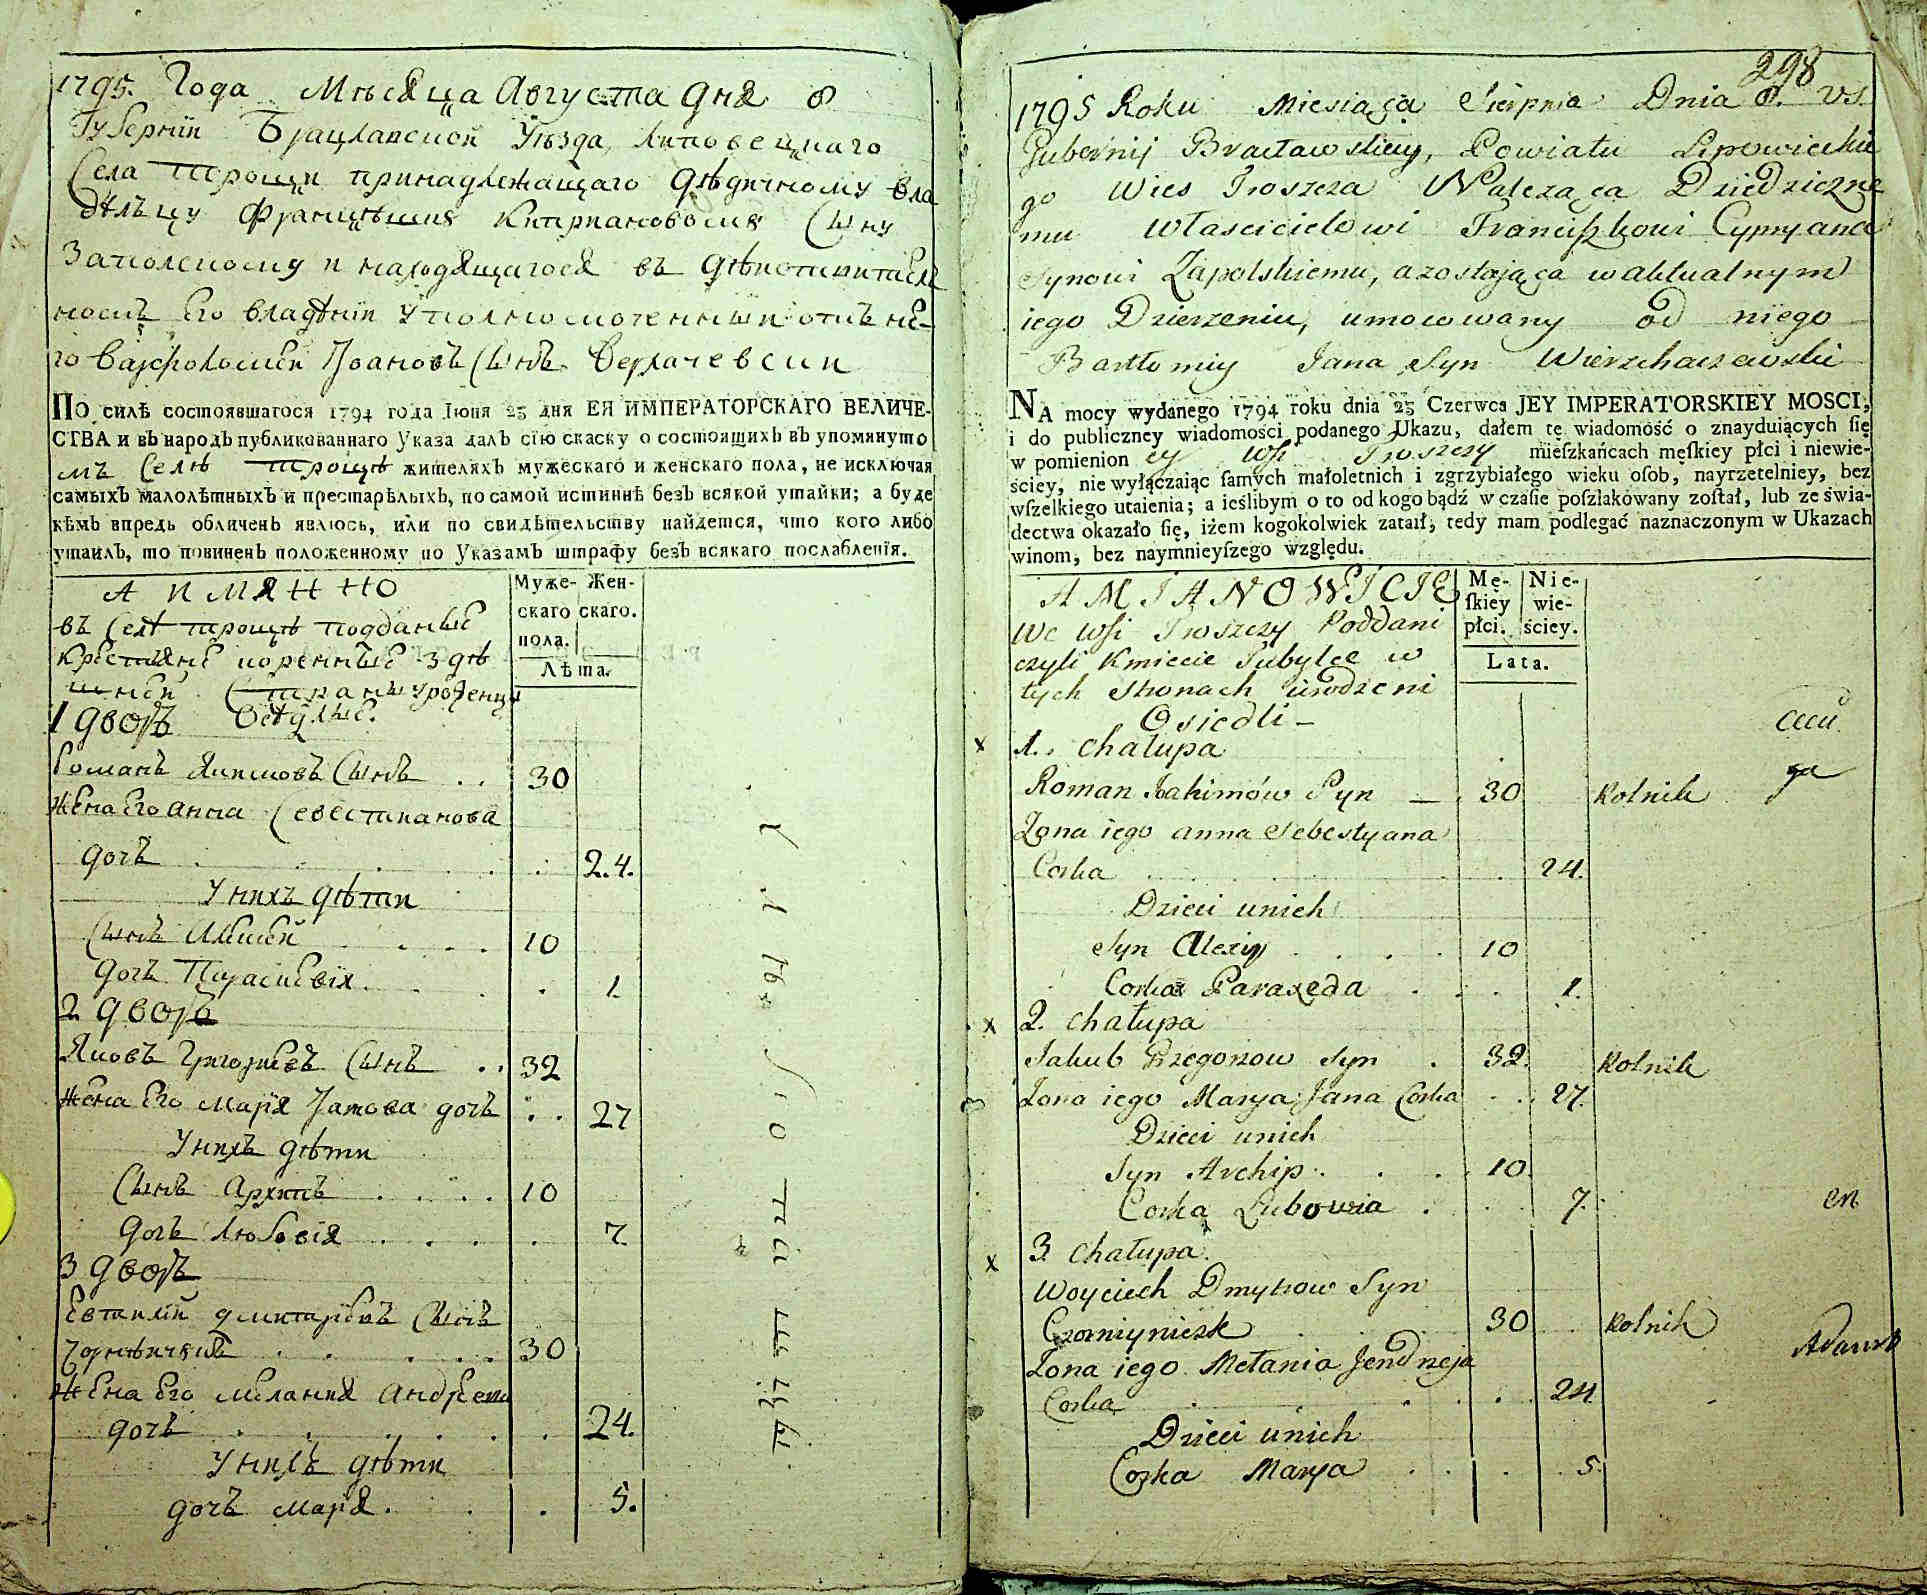 1795. Года Мѣсяца Августа дня 8
Губерніи Брацлавской Уѣзда Липовецкаго
Села Трощи принадлежащаго дѣдичному вла
дѣльцу Францѣшкя Киприановомя Сыну
Запольскому и находящагося въ дѣйствитель
номъ Его владѣніи Уполномоченный отъ не-
го Варфоломей Іоановъ Сынъ
ПО силѣ состоявшагося 1794 года Іюня 23 дня ЕЯ ИМПЕРАТОРСКАГО ВЕЛИЧЕ-
СТВА и въ народъ публикованнаго Указа далъ сію скаску о состоящихъ въ упомянуто
мъ Селѣ Трощѣ жителяхъ мужескаго и женскаго пола, не исключая
самыхъ малолѣтныхъ и престарѣлыхъ, по самой истиннѣ безъ всякой утайки; а буде
кѣмъ впредь обличенъ явлюсь, или по свидѣтельству найдется, что кого либо
утаилъ, то повиненъ положенному по Указамъ штрафу безъ всякаго послабленія.
А ИМЯННО
Муже- Жен-
скаго скаго.
пола.
Лѣта.
въ Селѣ Трощѣ подданые
Крестьяне коренные здѣ
шней Страны Уроженцы
1 дворъ Осѣдлые.
Романъ Якимовъ Сынъ . . 30
Жена Его Анна Севестианова
дочь . . 24.
У нихъ дѣти
Сынъ Алексей . . . 10
дочь Параскевія . . . 1.
2 дворъ
Яковъ Григорьевъ Сынъ . . 32
Жена Его Марія Іанова дочь . . 27
У нихъ дѣти
Сынъ Архипъ . . . . 10
дочь Любовія . . . . . 7.
3 дворъ
Евтихій Дмитріевъ Сынъ
. . . 30
Жена Его Мелания Андреева
дочь . . . . . 24.
У нихъ дѣти
дочь Марія . . . 5.
298
1795 Roku Miesiąca Sierpnia Dnia 8. V.S.
Gubernij Bracławskiey, Powiatu Lipowieckie
go Wieś Troszcza Należąca Dziedziczne
mu Właścicielowi Franciszkowi Cypryana
Synowi Zapolskiemu, a zostająca w aktualnym
iego Dzierzeniu, umocowany od niego
Bartłomiy Jana Syn Wierzchaczewski
NA mocy wydanego 1794 roku dnia 23 Czerwca JEY IMPERATORSKIEY MOSCI,
i do publiczney wiadomości podanego Ukazu, dałem tę wiadomość o znayduiących ſię
w pomienion ey Wsi Troszczy mieſzkańcach męſkiey płci i niewie-
ściey, nie wyłączaiąc ſamych małoletnich i zgrzybiałego wieku oſob, nayrzetelniey, bez
wſzelkiego utaienia; a ieślibym o to od kogo bądź w czaſie poſzlakowany zoſtał, lub ze świa-
dectwa okazało ſię, iżem kogokolwiek zataił, tedy mam podlegać naznaczonym w Ukazach
winom, bez naymnieyſzego względu.
A MIANOWICIE
Mę- Nie-
ſkiey wie-
płci. ściey.
Lata.
We Wsi Troszczy Poddani
czyli Kmiecie Tubylce w
tych stronach urodzeni
Osiedli –
x 1. Chałupa
Roman Jakimów Syn — . 30 Rolnik
Zona iego Anna Sebestyana
Corka . . 24.
Dzieci u nich
Syn Alexiy . . . . 10
Corka Paraxeda . . . 1.
x 2. Chałupa
Jakub Grzegorzow Syn . 32. Rolnik
Zona iego Marya Jana Corka . . 27.
Dzieci u nich
Syn Archip . . . 10.
Corka Lubowia . . . 7.
x 3. Chałupa
Woyciech Dmytrow Syn
. . 30 Rolnik
Zona iego Mełania Jendrzeja
Corka . . . 24
Dzieci u nich
Corka Marya . . . . 5.